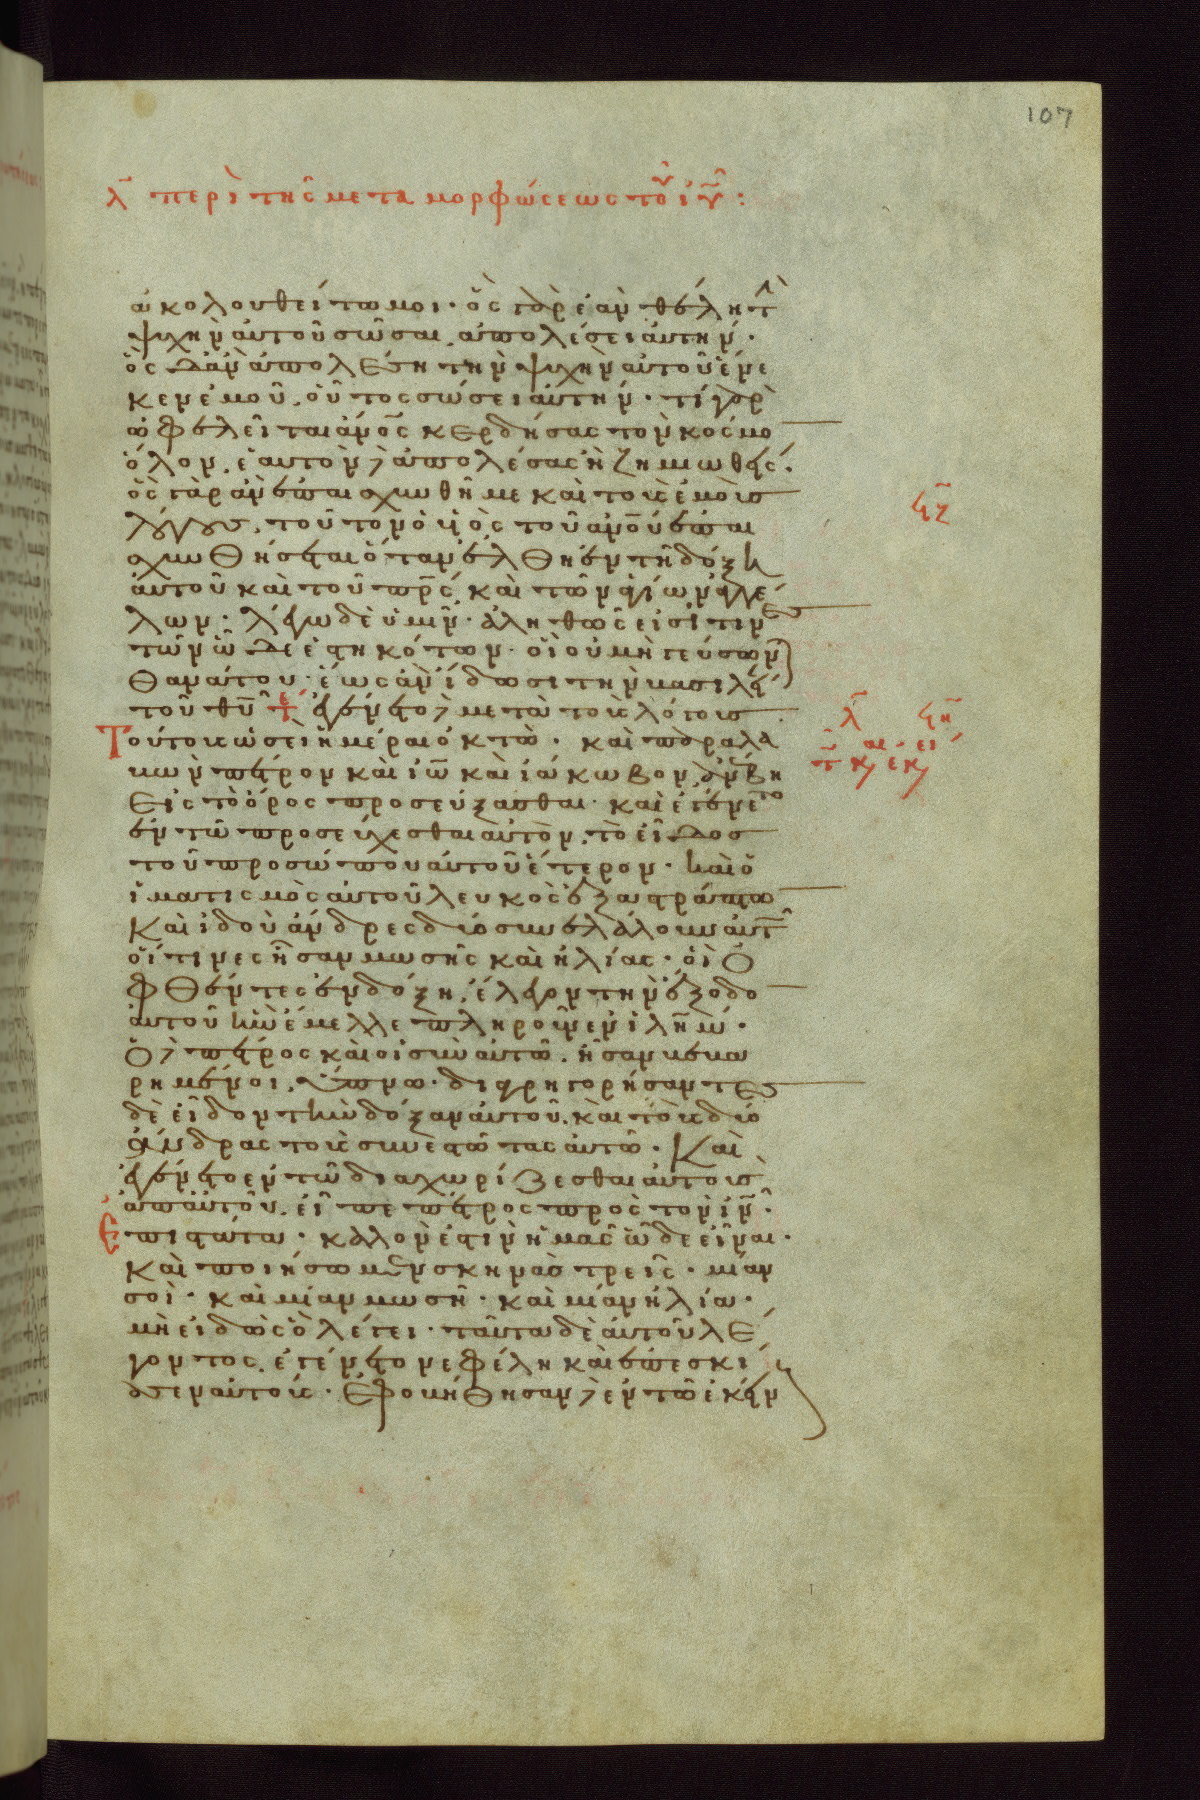 107
λ̄ περὶ τῆς μεταμορφώσεως τοῦ ἰῡ :
ἀκολουθείτω μοι · ὃς γὰρ ἐὰν θέλη τ(ὴν)
ψυχὴν αὐτοῦ σῶσαι, ἀπολέσει αὐτήν ·
ὃς δ' ἂν ἀπολέση τὴν ψυχὴν αὐτοῦ ἕνε
κεν ἐμοῦ, οὗτος σώσει αὐτήν · τί γὰρ
ὠφελεῖται ἄνο̄ς κερδήσας τὸν κόσμο
ὅλον, ἑαυτὸν δὲ ἀπολέσας ἢ ζημιωθείς.
ὃς γὰρ ἂν ἐπαισχυνθῆ με καὶ τοὺς ἐμοὺς
λόγους, τοῦτον ὁ ὑιὸς τοῦ ἀνο̄υ ἐπαι
σχυνθήσεται ὅταν ἔλθη ἐν τῆ δόξη
αὐτοῦ καὶ τοῦ πρ̄ς, καὶ τῶν ἁγίων ἀγγέ
λων · λέγω δὲ ὑμῖν · ἀληθῶς εἰσί τινες
τῶν ὧδε ἑστηκότων · οἳ οὐ μὴ γεύσωντ(αι)
θανάτου · ἕως ἂν ἴδωσι τὴν βασιλεί(αν)
τοῦ θῡ τέ ἐγένετο δὲ μετὰ τοὺς λόγους
Τούτους ὡσεὶ ἡμέραι ὀκτώ · καὶ παραλα
βὼν πέτρον καὶ ἰω̄ καὶ ἰάκωβον, ἀνέβη
εἰς τὸ ὄρος προσεύξασθαι · καὶ ἐγένετο
ἐν τῶ προσεύχεσθαι αὐτὸν, τὸ εἶδος
τοῦ προσώπου αὐτοῦ ἕτερον · καὶ ὁ
ἱματισμὸς αὐτοῦ λευκὸς ἐξαστράπτω
Καὶ ἰδοὺ ἄνδρες δύο συνελάλουν αὐτ(ῶ)
οἵτινες ἦσαν μωσῆς καὶ ἠλίας · οἳ ὀ
φθέντες ἐν δόξη, ἔλεγον τὴν ἔξοδο
αὐτοῦ ἣν ἔμελλε πληροῦν ἐν ἰλη̄μ ·
Ὁ δὲ πέτρος καὶ οἱ σὺν αὐτῶ, ἦσαν βεβα
ρημένοι, ὕπνω · διαγρηγορήσαντες
δὲ εἶδον τὴν δόξαν αὐτοῦ, καὶ τοὺς δύο
ἄνδρας τοὺς συνεστῶτας αὐτῶ · Καὶ
ἐγένετο ἐν τῶ διαχωρίζεσθαι αὐτοὺς
ἀπ' αὐτοῦ, εἶπε πέτρος πρὸς τὸν ἰν̄ ·
Ἐπιστάτα · καλόν ἐστιν ἡμᾶς ὧδε εἶναι ·
καὶ ποιήσωμεν σκηνὰς τρεῖς · μίαν
σοὶ · καὶ μίαν μωσῆ · καὶ μίαν ἠλία ·
μὴ εἰδὼς ὃ λέγει · ταῦτα δὲ αὐτοῦ λέ
γοντος, ἐγένετο νεφέλη καὶ ἐπεσκί
ασεν αὐτούς · Ἐφοβήθησαν δὲ ἐν τῶ ἐκείν
ϟζ̄
λ̄ ϟη̄